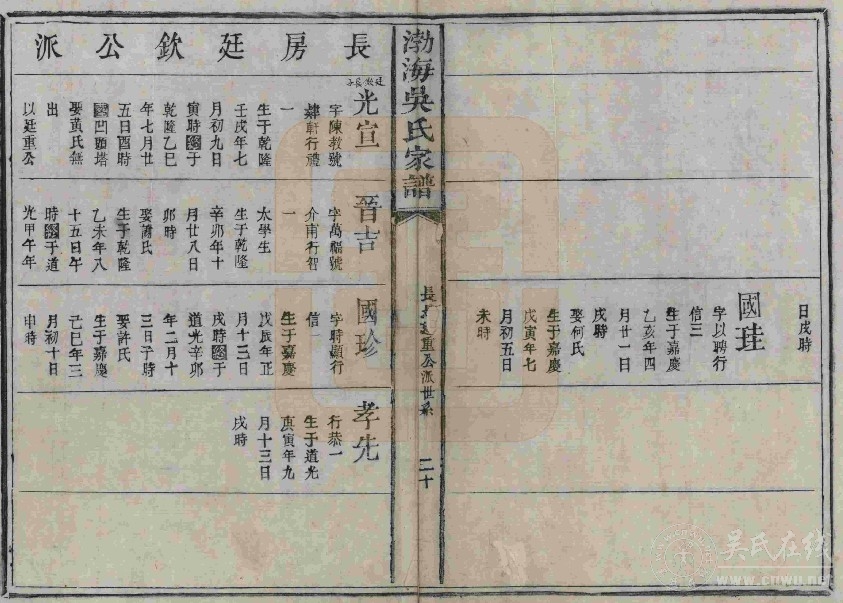 日戌時
國珪
字以聘行
信三
生于嘉慶
乙亥年四
月廿一日
戌時
娶何氏
生于嘉慶
戊寅年七
月初五日
未時
渤海吳氏家譜
重公派世系
二十
長房廷欽公派
光宣
字陳敎號
肄軒行禮
一
生于乾隆
壬戌年七
月初九日
寅時終于
乾隆乙巳
年七月廿
五日酉時
凹頭塔
娶黃氏無
出
以廷重公
晉吉
字萬福號
介甫行智
一
太學生
生于乾隆
辛卯年十
月廿八日
卯時
娶蕭氏
生于乾隆
乙未年八
十五日午
時終于道
光甲午年
國珍
字時顯行
信一
生于嘉慶
戊辰年正
月十三日
戌時終于
道光辛卯
年二月十
三日子時
娶許氏
生于嘉慶
己巳年三
月初十日
申時
孝先
行恭一
生于道光
庚寅年九
月十三日
戌時
吳氏在线
www.cnwu.net